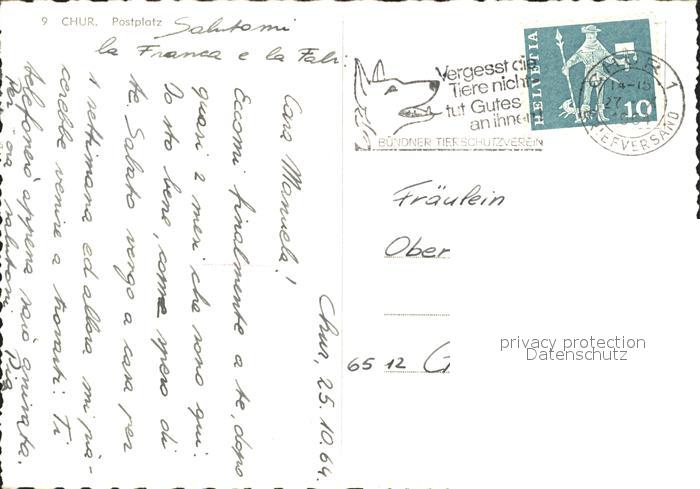 9 CHUR. Postplatz
Salutami
la Franca e la Fabi.
Chur, 25.10.64.
Cara Manuela!
Eccomi finalmente a te, dopo
quasi 2 mesi che sono qui.
Io sto bene, come spero di
te. Sabato vengo a casa per
1 settimana ed allora mi pia-
cerebbe venire a trovarti. Ti
telefonerò appena sarò arrivata.
Per ora salutoni. Pia
Vergesst die
Tiere nicht
tut Gutes
an ihnen
BÜNDNER TIERSCHUTZVEREIN
HELVETIA
10
CHUR 1
14-15
27.
BRIEFVERSAND
Fräulein
Ober
6512 G
privacy protection
Datenschutz